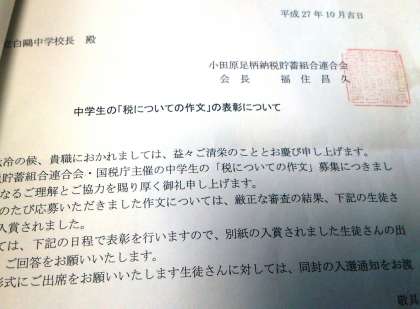 平成27年10月吉日
白鷗中学校長 殿
小田原足柄納税貯蓄組合連合会
会 長 福 住 昌 久
中学生の「税についての作文」の表彰について
冷の候、貴職におかれましては、益々ご清栄のこととお慶び申し上げます。
貯蓄組合連合会・国税庁主催の中学生の「税についての作文」募集につきまし
なるご理解とご協力を賜り厚く御礼申し上げます。
のたび応募いただきました作文については、厳正な審査の結果、下記の生徒さ
入賞されました。
ては、下記の日程で表彰を行いますので、別紙の入賞されました生徒さんの出
ご回答をお願いいたします。
彰式にご出席をお願いいたします生徒さんに対しては、同封の入選通知をお渡
敬具